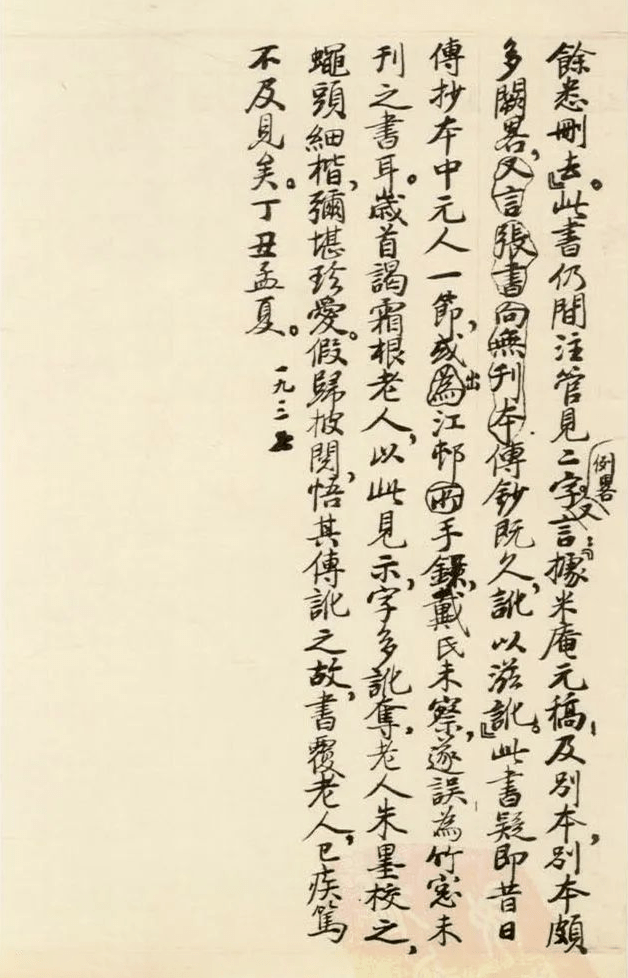 餘悉刪去。』此書仍間注管見二字。例畧又言：『據米庵元稿，及別本，別本頗
多闕畧，又言張書向無刊本傳鈔既久，訛以滋訛。』此書疑即昔日
傳抄本中元人一節，或為出江邨兩手錄，戴氏未察，遂誤為竹窓未
刊之書耳。歲首謁霜根老人，以此見示，字多訛奪，老人朱墨校之，
蠅頭細楷，彌堪珍愛。假歸披閱，悟其傳訛之故，書覆老人，已疾篤
不及見矣。丁丑孟夏。
一九三七